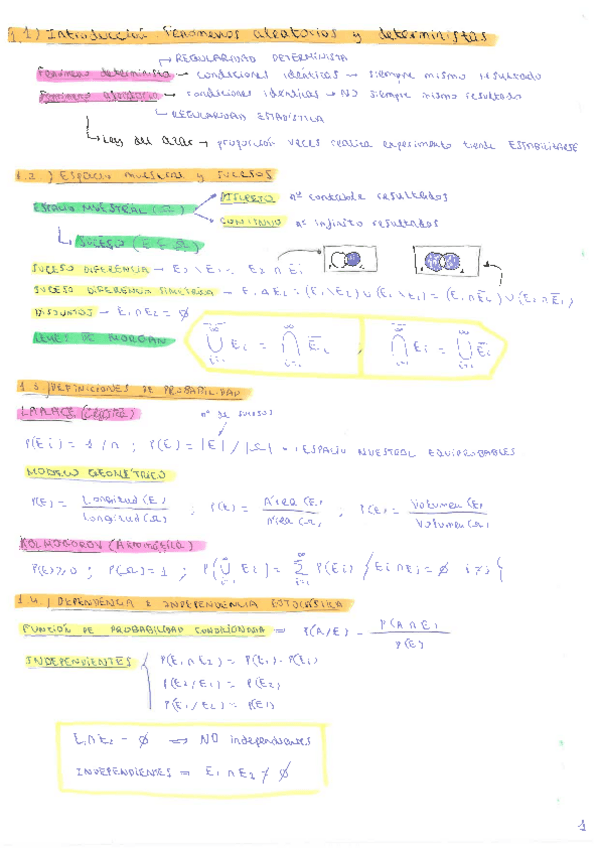 1.1) Introducción. Fenómenos aleatorios y deterministas
REGULARIDAD DETERMINISTA
Fenómeno determinista → condiciones idénticas → siempre mismo resultado
Fenómeno aleatorio → condiciones idénticas → NO siempre mismo resultado
REGULARIDAD ESTADÍSTICA
Ley del azar → proporción veces realiza experimento tiende ESTABILIZARSE
1.2) Espacio muestral y sucesos
DISCRETO nº contable resultados
ESPACIO MUESTRAL (Ω)
CONTINUO nº infinito resultados
SUCESO (E ∈ Ω)
SUCESO DIFERENCIA → E2 \ E1 = E2 ∩ Ēi
SUCESO DIFERENCIA SIMÉTRICA → E1 Δ E2 = (E1 \ E2) ∪ (E2 \ E1) = (E1 ∩ Ē2) ∪ (E2 ∩ Ē1)
DISJUNTOS → E1 ∩ E2 = ∅
LEYES DE MORGAN
∞ ⋃ i=1 Ei = ∞ ⋂ i=1 Ēi ; ∞ ⋂ i=1 Ei = ∞ ⋃ i=1 Ēi
1.3) DEFINICIONES DE PROBABILIDAD
LAPLACE (CLÁSICA) nº de sucesos
P(Ei) = 1/n ; P(E) = |E| / |Ω| → ESPACIO MUESTRAL EQUIPROBABLES
MODELO GEOMÉTRICO
P(E) = Longitud (E) / Longitud (Ω) ; P(E) = Área (E) / Área (Ω) ; P(E) = Volumen (E) / Volumen (Ω)
KOLMOGOROV (Axiomática)
P(E) ≥ 0 ; P(Ω) = 1 ; P( ∞ ⋃ i=1 Ei ) = ∞ Σ i=1 P(Ei) / Ei ∩ Ej = ∅ i ≠ j
1.4) DEPENDENCIA E INDEPENDENCIA ESTOCÁSTICA
FUNCIÓN DE PROBABILIDAD CONDICIONADA = P(A/E) = P(A ∩ E) / P(E)
INDEPENDIENTES { P(E1 ∩ E2) = P(E1) · P(E2)
P(E2/E1) = P(E2)
P(E1/E2) = P(E1)
E1 ∩ E2 = ∅ ⇒ NO independientes
INDEPENDIENTES = E1 ∩ E2 ≠ ∅
1